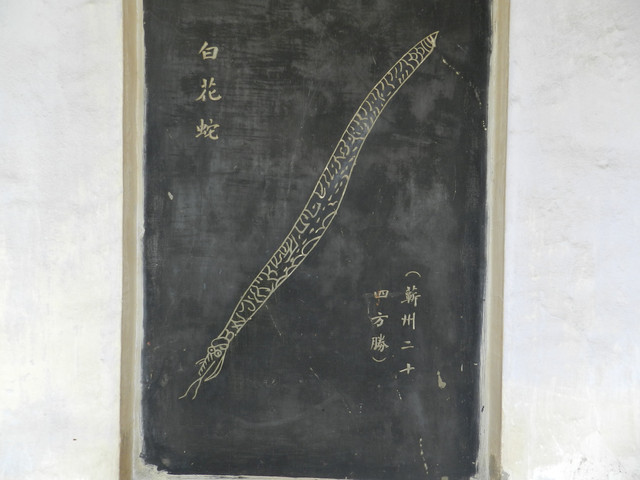 白花蛇
（蕲州二十
四方勝）